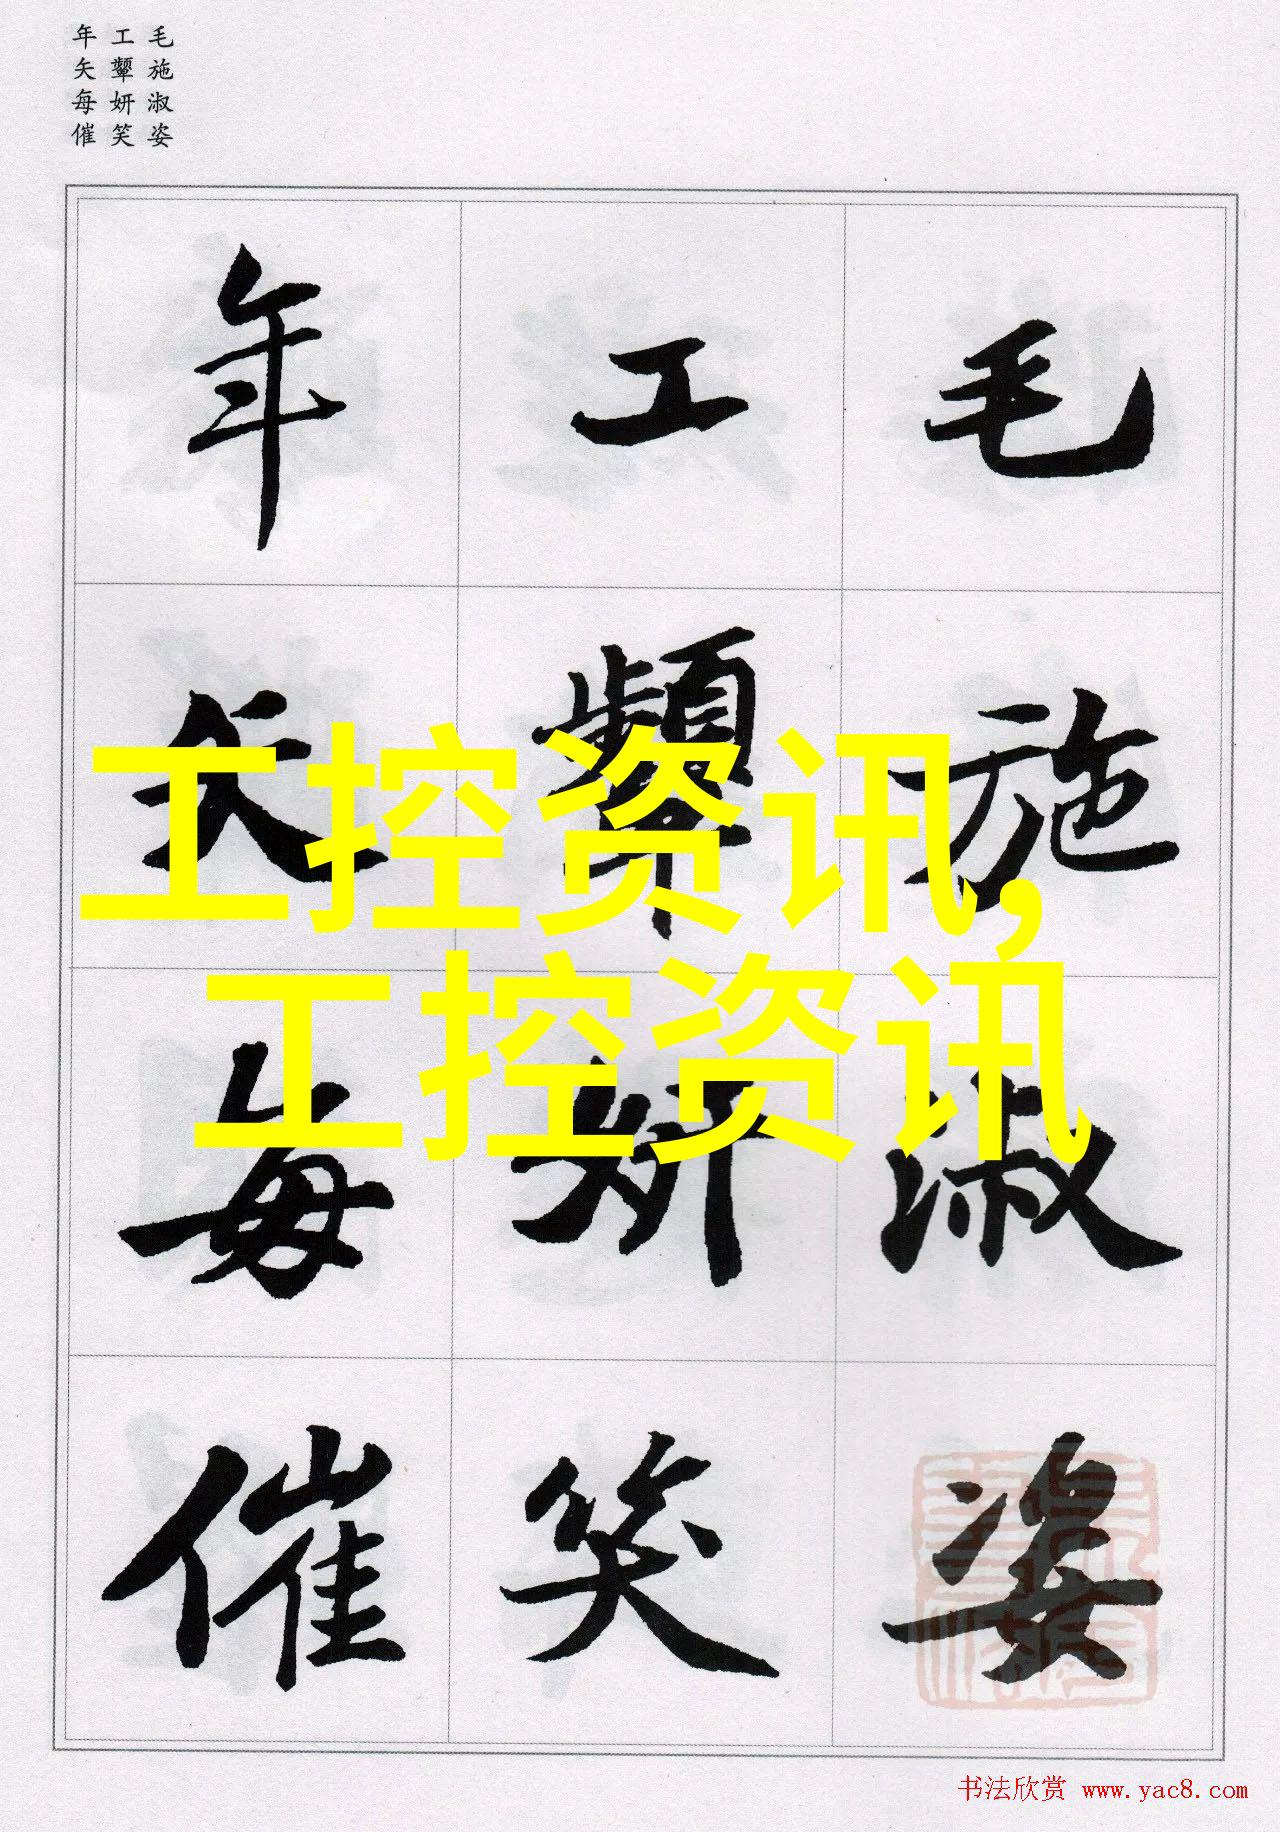 毛施淑姿
工颦妍笑
年矢每催
毛施淑姿
工颦妍笑
年矢每催
工控资讯,
工控资讯
书法欣赏 www.yac8.com